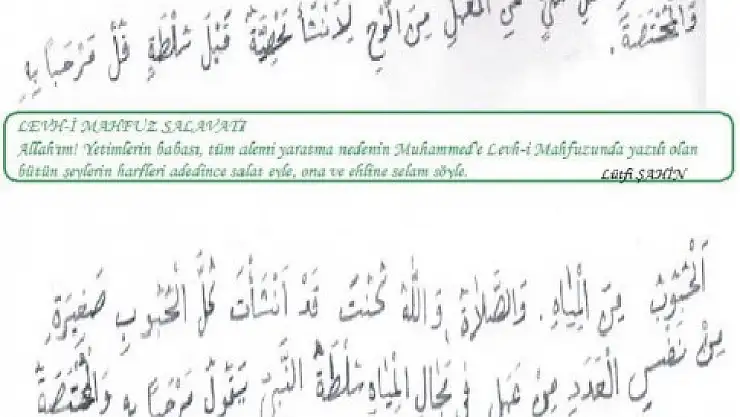 مِنَ الْوَحْيِ لِأَنْشَأَ تَحِيَّةً قَبْلَ سُلْطَةِ قُلْ مَرْحَبًا بِهِ
وَالْمُخْتَصَّةُ.
LEVH-İ MAHFUZ SALAVATI
Allah'ım! Yetimlerin babası, tüm alemi yaratma nedenin Muhammed'e Levh-i Mahfuzunda yazılı olan
bütün şeylerin harfleri adedince salat eyle, ona ve ehline selam söyle.
Lütfi ŞAHİN
اَلْحُبُوبُ مِنَ الْمِيَاهِ. وَالصَّلَاةُ وَاللَّهُ كُنْتُ قَدْ اَنْشَأْتَ كُلَّ الْحُبُوبِ صَغِيرَةٍ
مِنْ نَفْسِ الْعَدَدِ مِنْ عَمَلٍ فِي مَجَالِ الْمِيَاهِ سُلْطَةُ النَّبِيِّ يَقُولُ مَرْحَبًا بِهِ وَالْمُخْتَصَّةُ